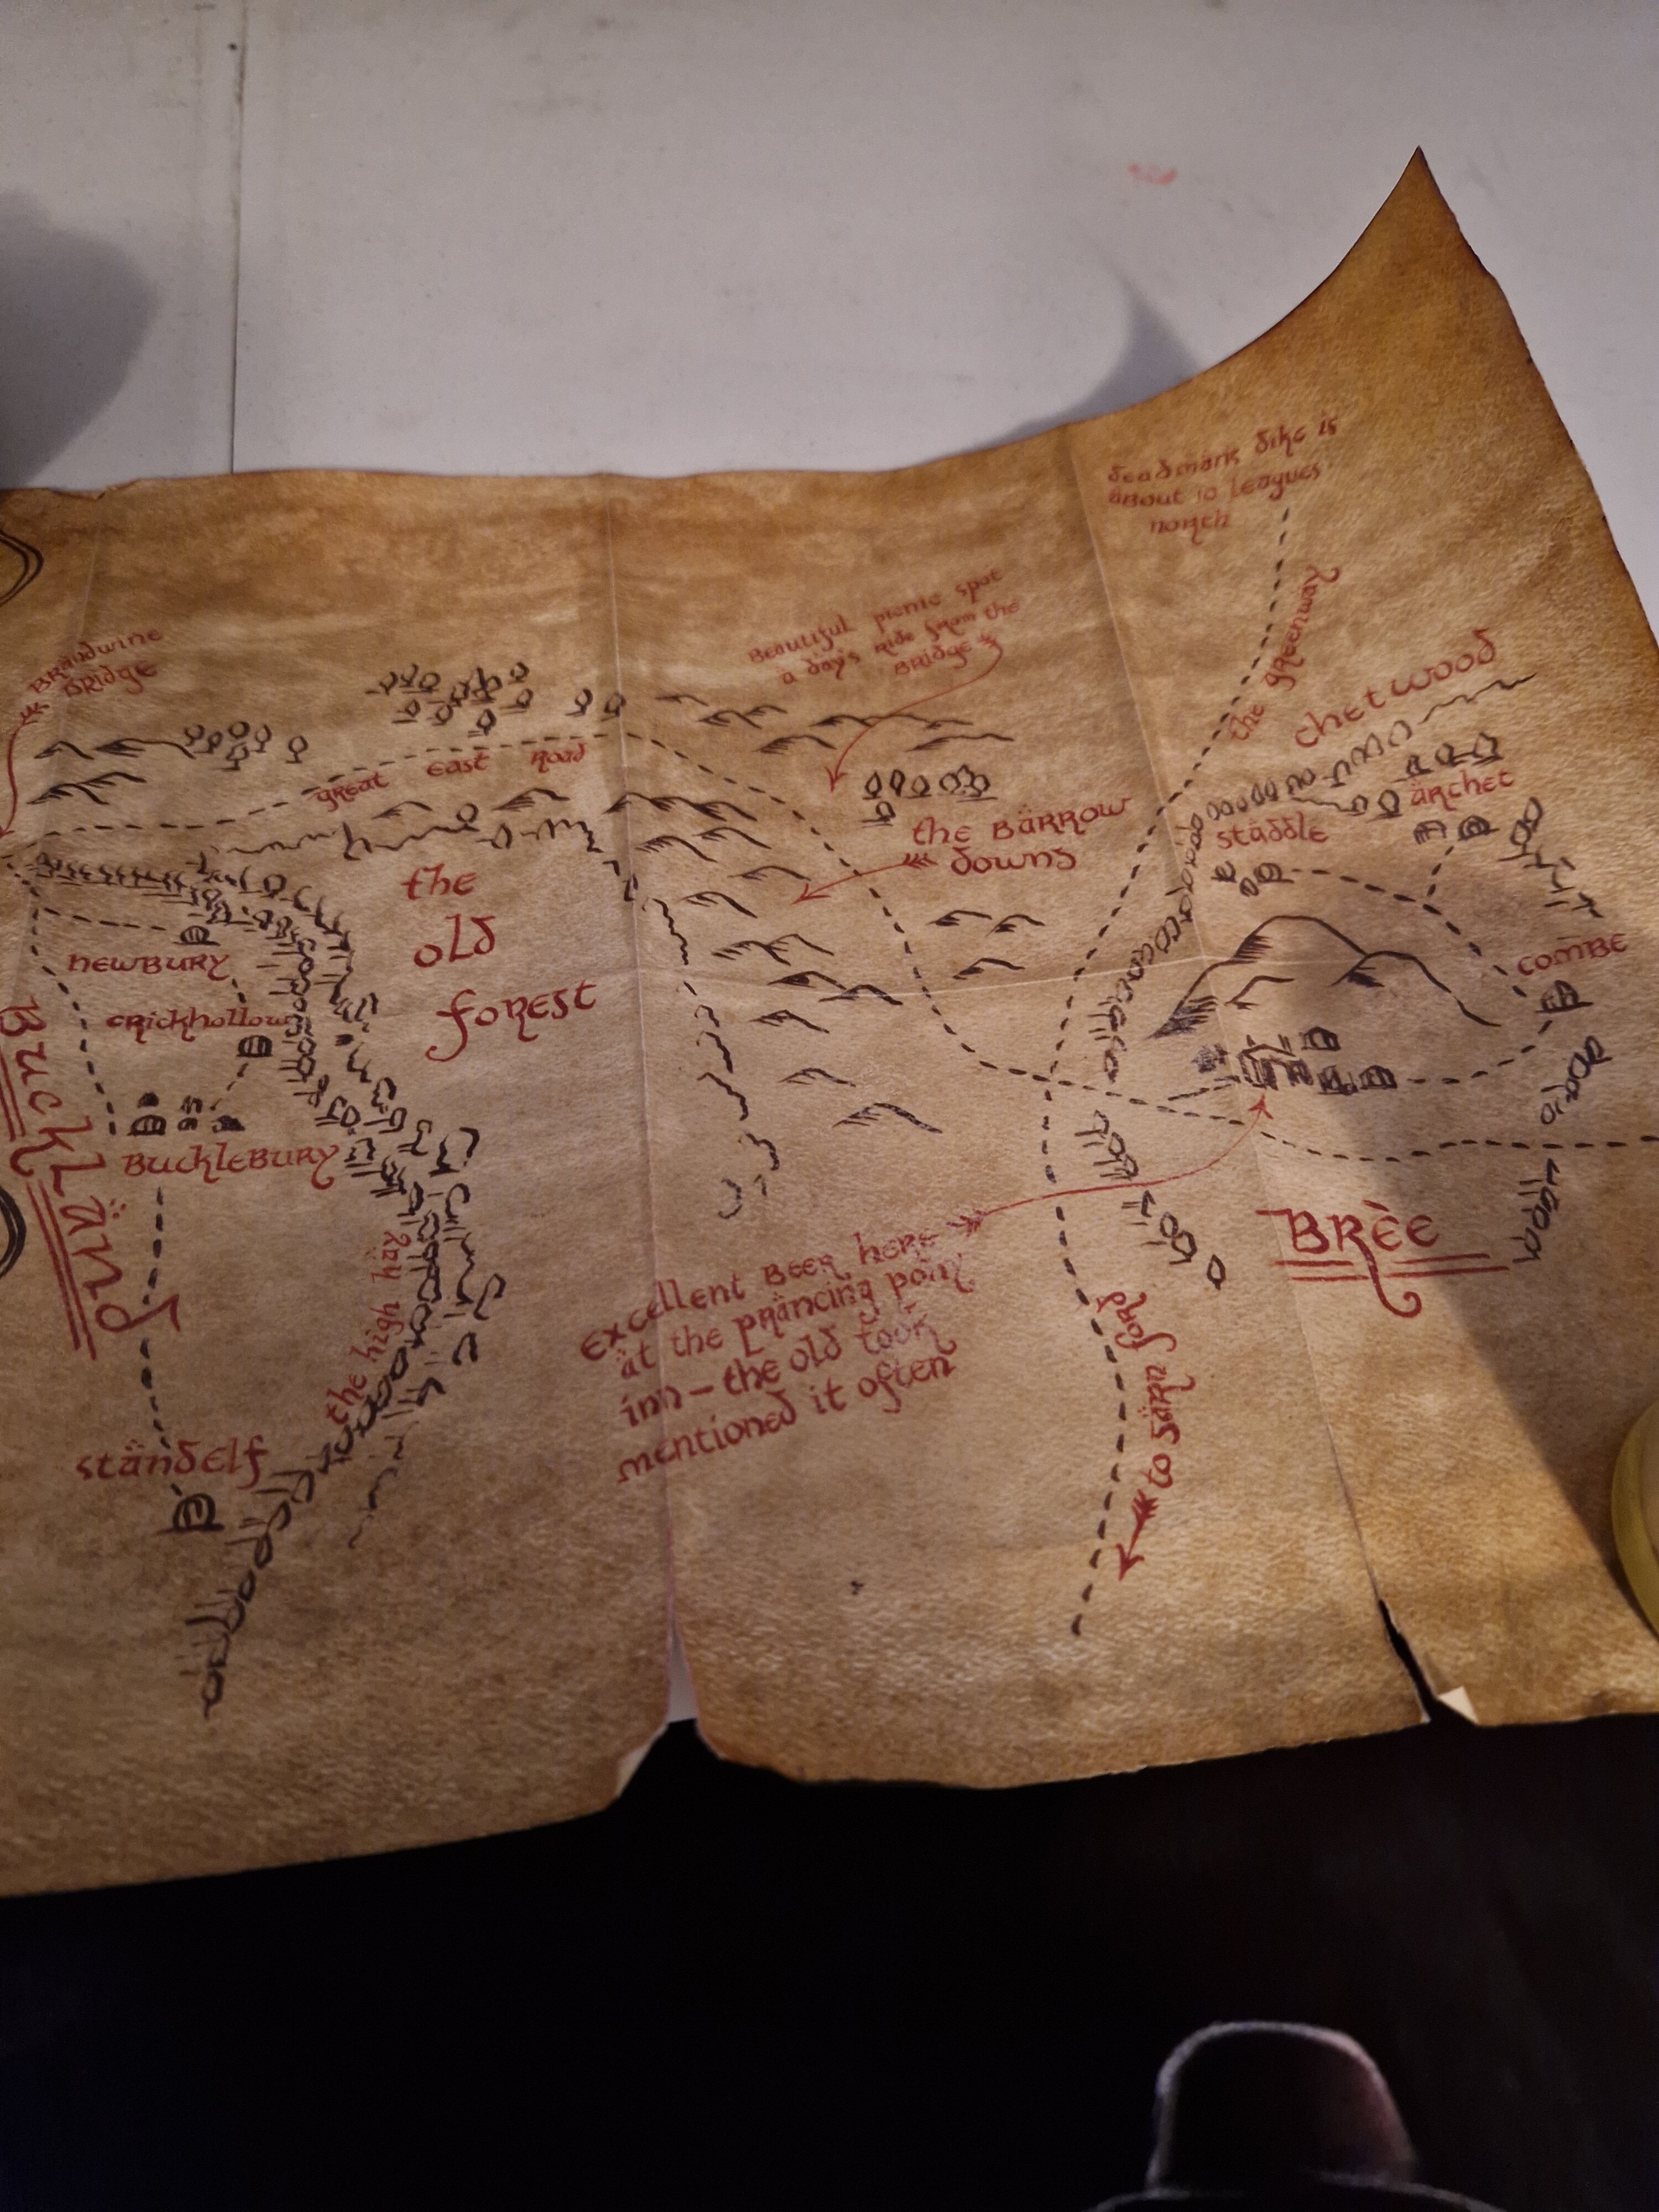 deadmans dike is
about 10 leagues
north
the greenway
Beautiful picnic spot
a day's ride from the
Bridge
Brandwine
Bridge
chetwood
great east road
archet
staddle
the Barrow
downs
the
old
forest
newbury
combe
crickhollow
Buckland
Bucklebury
Brèe
excellent Beer here
at the prancing pony
inn - the old took
mentioned it often
the high hay
to sarn ford
standelf